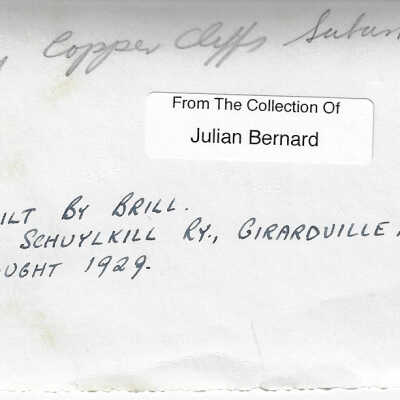 Copper Cliffs Suburb
From The Collection Of
Julian Bernard
ILT BY BRILL.
SCHUYLKILL RY., GIRARDVILLE,
OUGHT 1929.